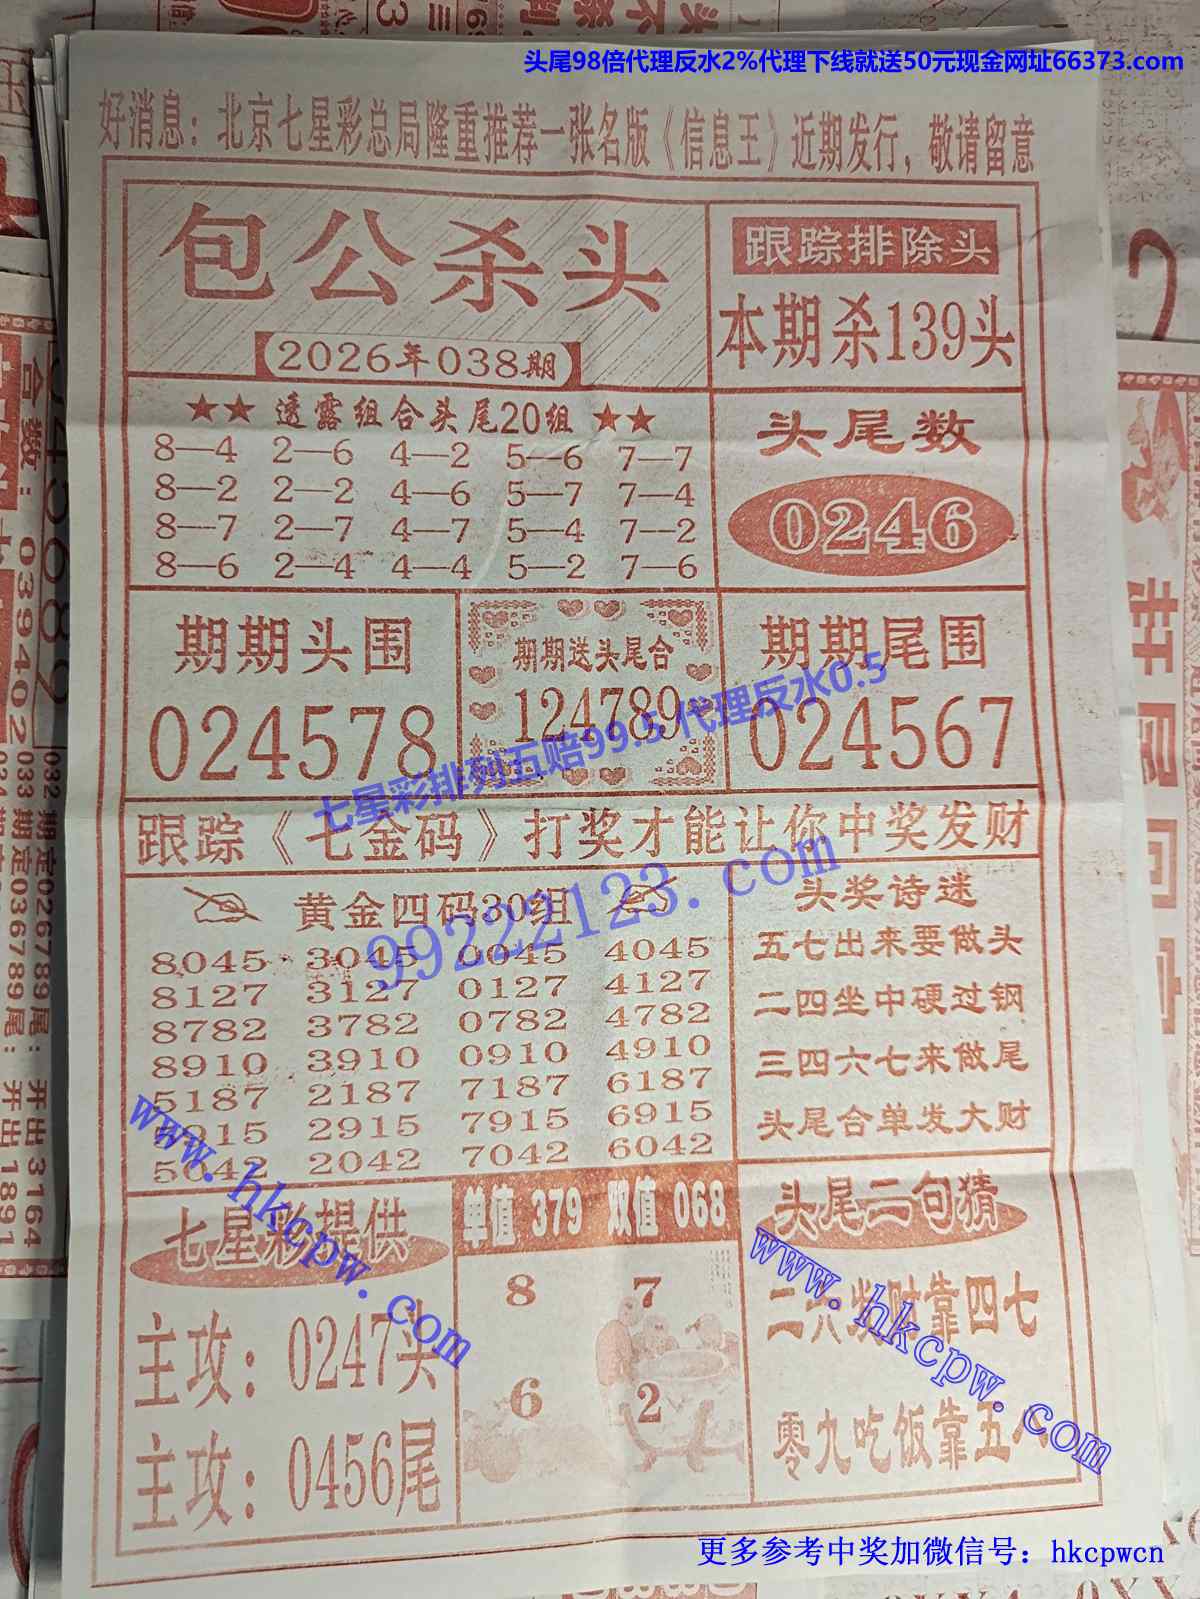 头尾98倍代理反水2%代理下线就送50元现金网址66373.com
好消息：北京七星彩总局隆重推荐一张名版《信息王》近期发行，敬请留意
包公杀头
【2026年038期】
跟踪排除头
本期杀139头
★★ 透露组合头尾20组 ★★
8—4 2—6 4—2 5—6 7—7
8—2 2—2 4—6 5—7 7—4
8—7 2—7 4—7 5—4 7—2
8—6 2—4 4—4 5—2 7—6
头尾数
0246
期期头围
024578
期期送头尾合
124789
期期尾围
024567
七星彩排列五赔99.5 代理反水0.5
跟踪《七金码》打奖才能让你中奖发财
99222123.com
黄金四码30组
8045 3045 0045 4045
8127 3127 0127 4127
8782 3782 0782 4782
8910 3910 0910 4910
5187 2187 7187 6187
5915 2915 7915 6915
5042 2042 7042 6042
头奖诗迷
五七出来要做头
二四坐中硬过钢
三四六七来做尾
头尾合单发大财
www.hkcpw.com
七星彩提供
主攻：0247头
主攻：0456尾
单值 379 双值 068
8 7
6 2
头尾二句猜
二六柴财靠四七
零九吃饭靠五八
www.hkcpw.com
更多参考中奖加微信号：hkcpwcn